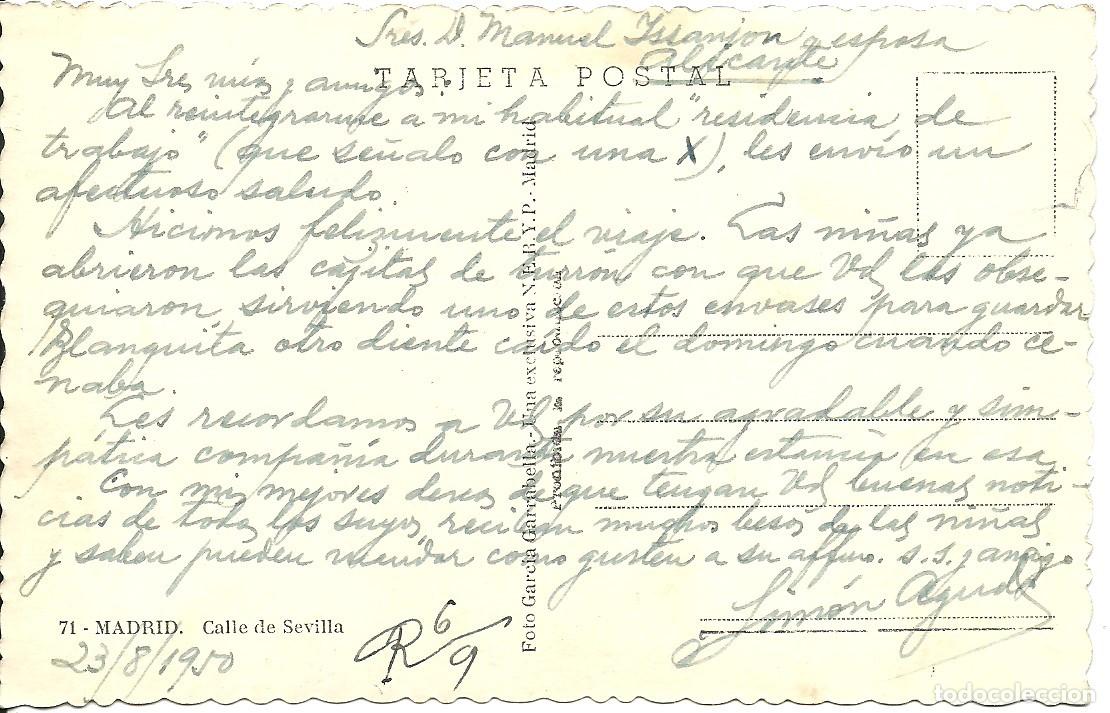 Sres. D. Manuel Issanjou y esposa
Alicante
TARJETA POSTAL
Muy Sres. míos y amigos:
Al reintegrarme a mi habitual "residencia de
trabajo" (que señalo con una X), les envío un
afectuoso saludo.
Hicimos felizmente el viaje. Las niñas ya
abrieron las cajitas de turrón con que Vds. las obse-
quiaron, sirviendo uno de estos envases para guardar
Blanquita otro diente caído el domingo cuando ce-
naba.
Les recordamos a Vds. por su agradable y sim-
pática compañía durante nuestra estancia en esa.
Con mis mejores deseos de que tengan Vds. buenas noti-
cias de todos los suyos, reciban muchos besos de las niñas
y saben pueden mandar como gusten a su affmo. s. s. y amigo
Simón
71 - MADRID. Calle de Sevilla
23/8/1950
R 6/9
Foto García Garrabella.- Una exclusiva N.E.B.Y.P. - Madrid
todocoleccion